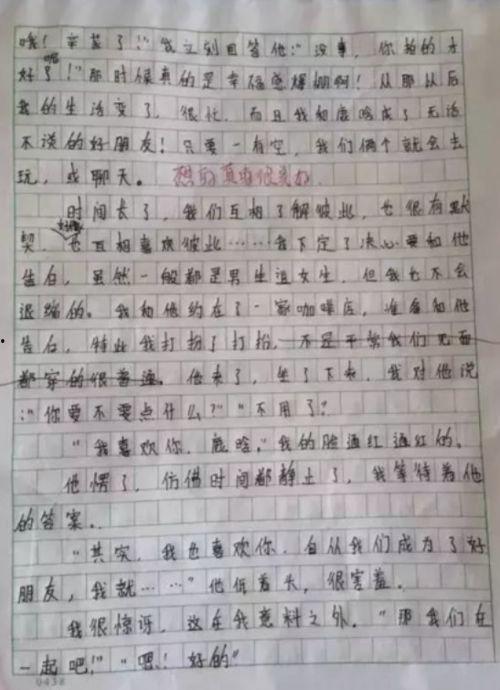 哦！辛苦了！"我立刻回答他："没事，你拍的太
好了！"那时候真的是幸福感爆棚啊！从那以后
我的生活变了，很忙，而且我和鹿晗成了无话
不谈的好朋友！只要一有空，我们俩个就会去
玩，或聊天。 想的真有很美好
时间长了，我们互相了解彼此，也很有默
契，好像也互相喜欢彼此……我下定了决心要和他
告白，虽然一般都是男生追女生，但我也不会
退缩的。我和他约在了一家咖啡店，准备和他
告白，特此我打扮了打扮，不足平常我们见面
都穿的很普通。他来了，坐了下来，我对他说
："你要不要点什么？""不用了？
"我喜欢你，鹿晗。"我的脸通红通红的。
他愣了，仿佛时间都静止了，我等待着他
的答案。
"其实，我也喜欢你，自从我们成为了好
朋友，我就……"他低着头，很害羞。
我很惊讶，这在我意料之外。"那我们在
一起吧！""嗯！好的"
0438